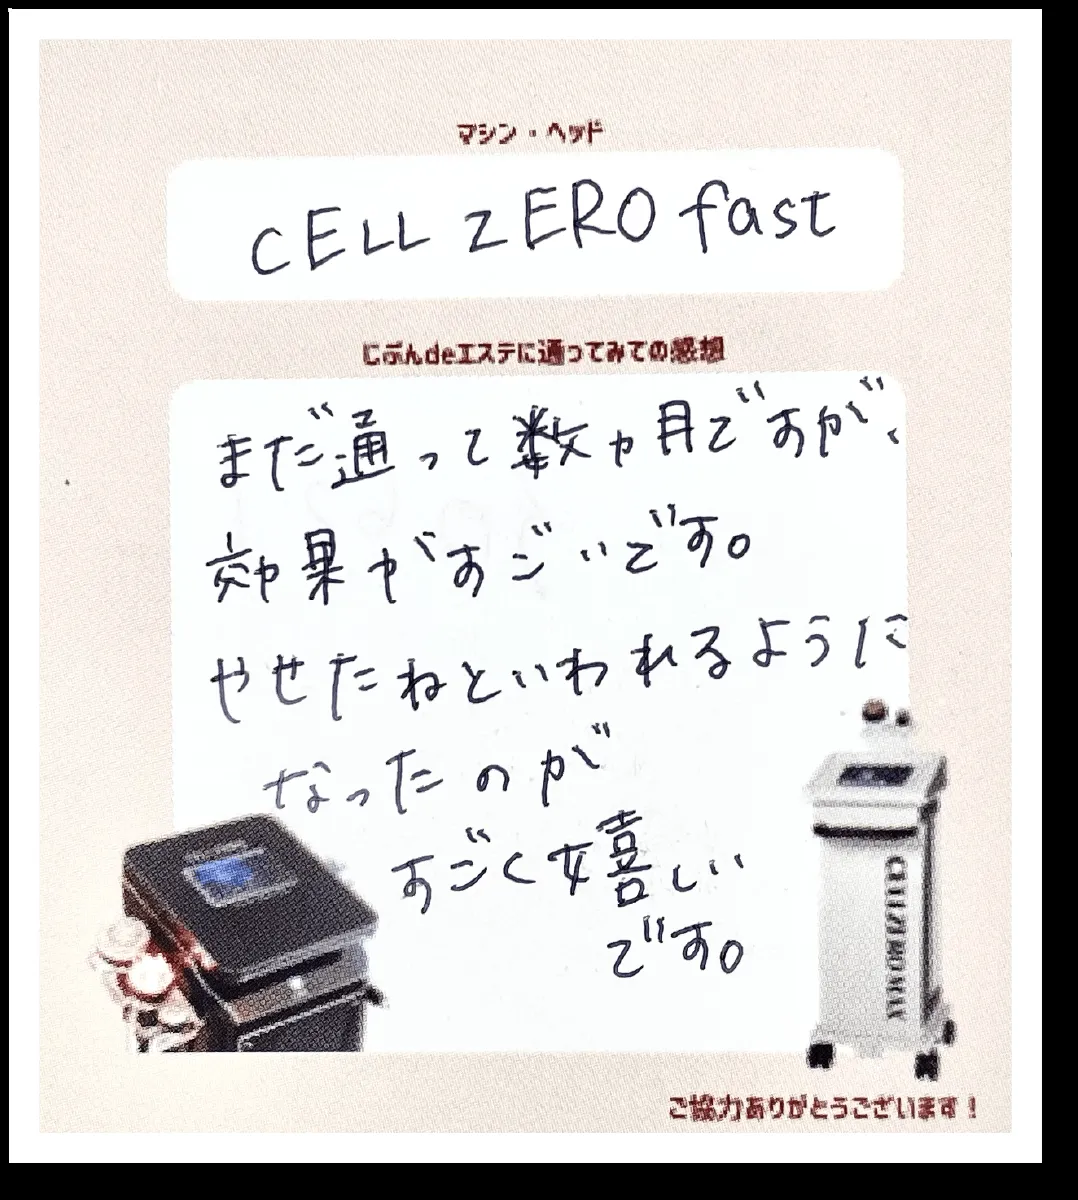 マシン・ヘッド
CELL ZERO fast
じぶんdeエステに通ってみての感想
まだ通って数ヶ月ですが、
効果がすごいです。
やせたねといわれるように
なったのが
すごく嬉しい
です。
CELLZEROMAX
ご協力ありがとうございます！